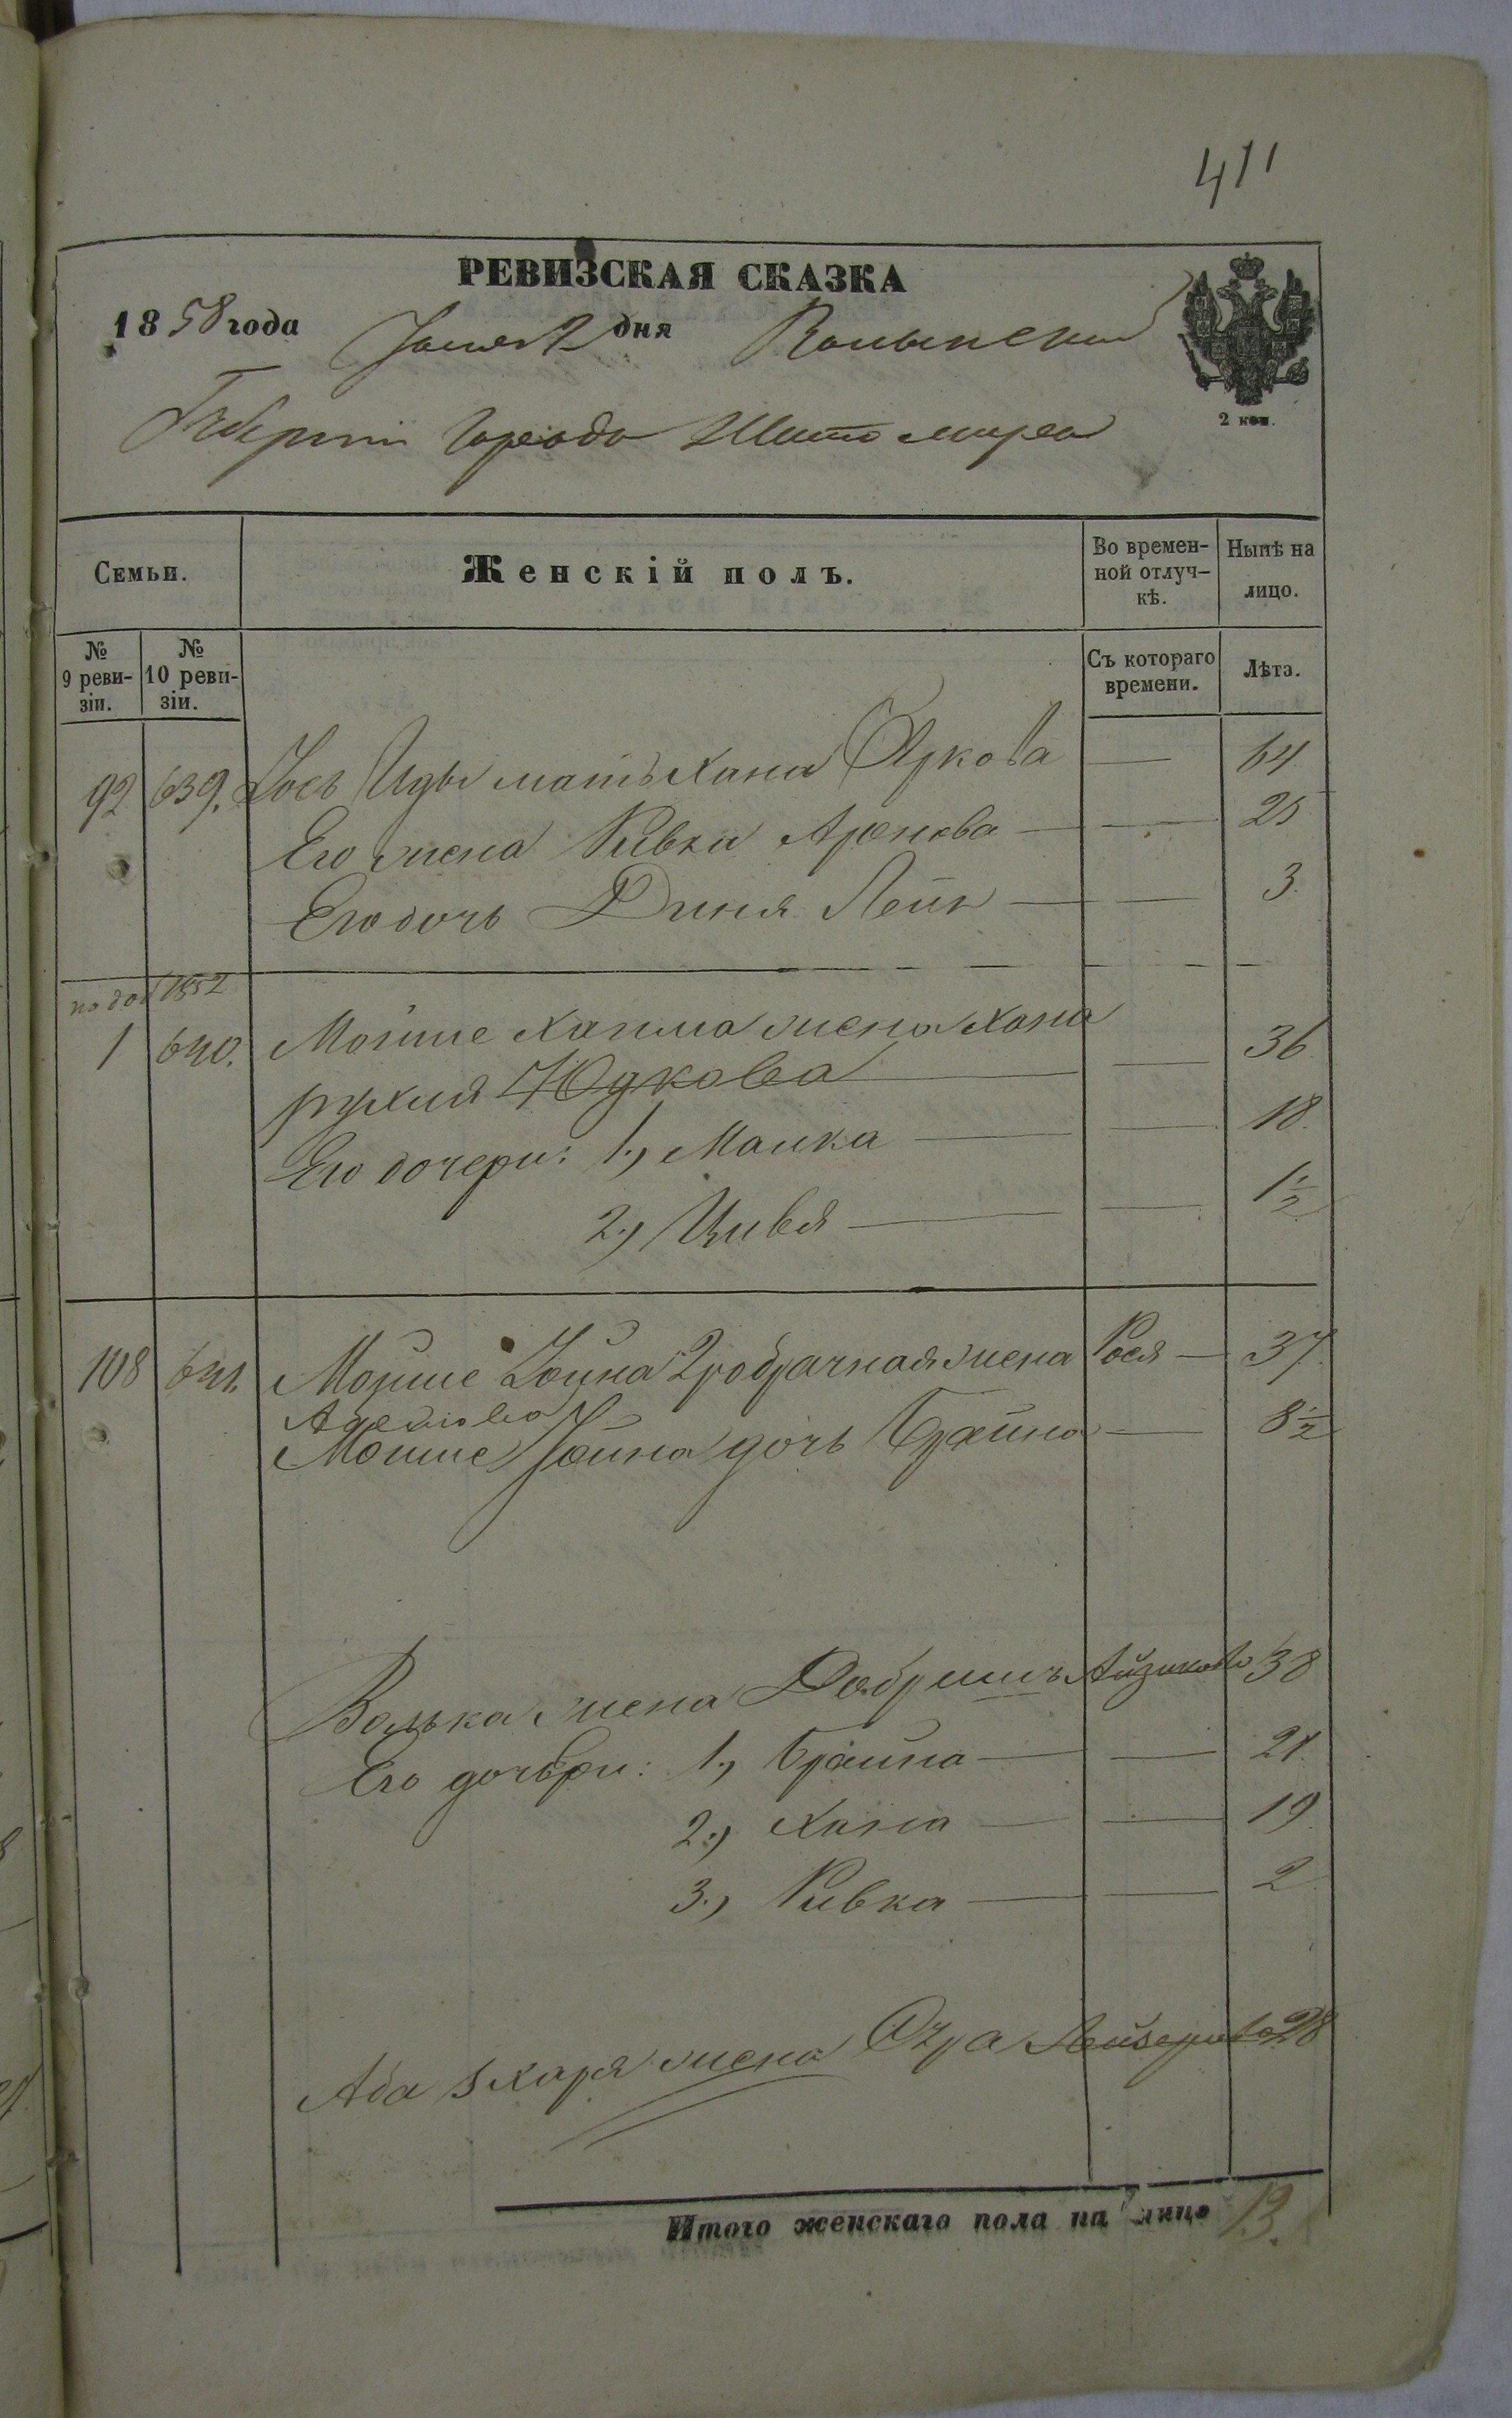 411
РЕВИЗСКАЯ СКАЗКА
1858 года Іюня 2 дня Волынской
Губерніи Города Житомира
2 коп.
Семьи.
Женскій полъ.
Во времен-
ной отлуч-
кѣ.
Нынѣ на
лицо.
№
9 реви-
зіи.
№
10 реви-
зіи.
Съ котораго
времени.
Лѣта.
92 639. Іось Иды мать Хана 64
Его жена Ривка Аронова — — 25
Его дочь Диня Лея — — 3.
по доп 1852
1 640. Мошие Хаима жена Хана
рухля Юдкова — — 36.
Его дочери: 1., Малка — — 18.
2., Цивя — — 1½
108 641. Мошие Іойна 2робрачная жена Рося — 37.
Мошие Іойна дочь Брайна — 8½
Волька жена Добришъ Айзикова 38
Его дочери: 1., Брайна — — 21.
2., Хана — — 19.
3., Ривка — — 2.
Аба жена 28
Итого женскаго пола на лицо 13.